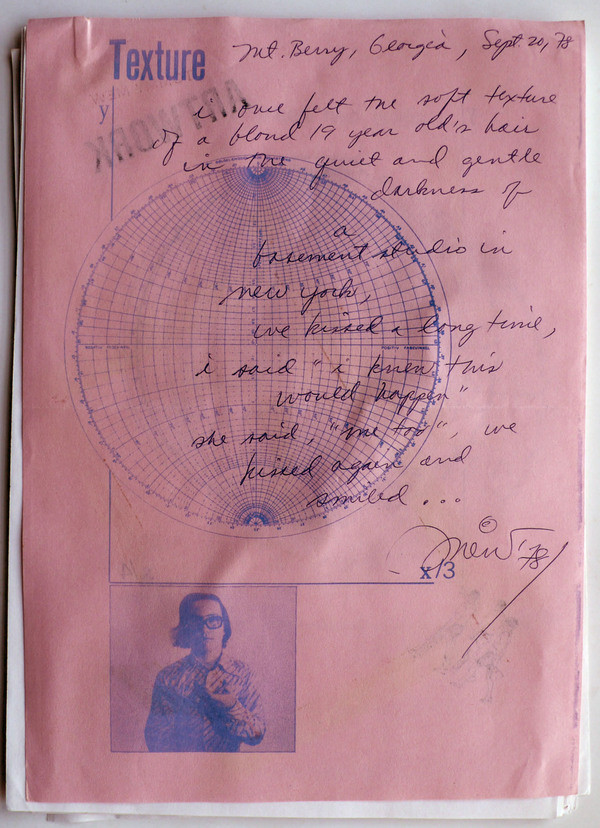 Texture
Mt. Berry, Georgia, Sept. 20, 78
y
ARTWORK
i once felt the soft texture
of a blond 19 year old's hair
in the quiet and gentle
darkness of
a
basement studio in
new york,
we kissed a long time,
i said "i knew this
would happen"
she said, "me too", we
kissed again and
smiled...
©
'78
x/3